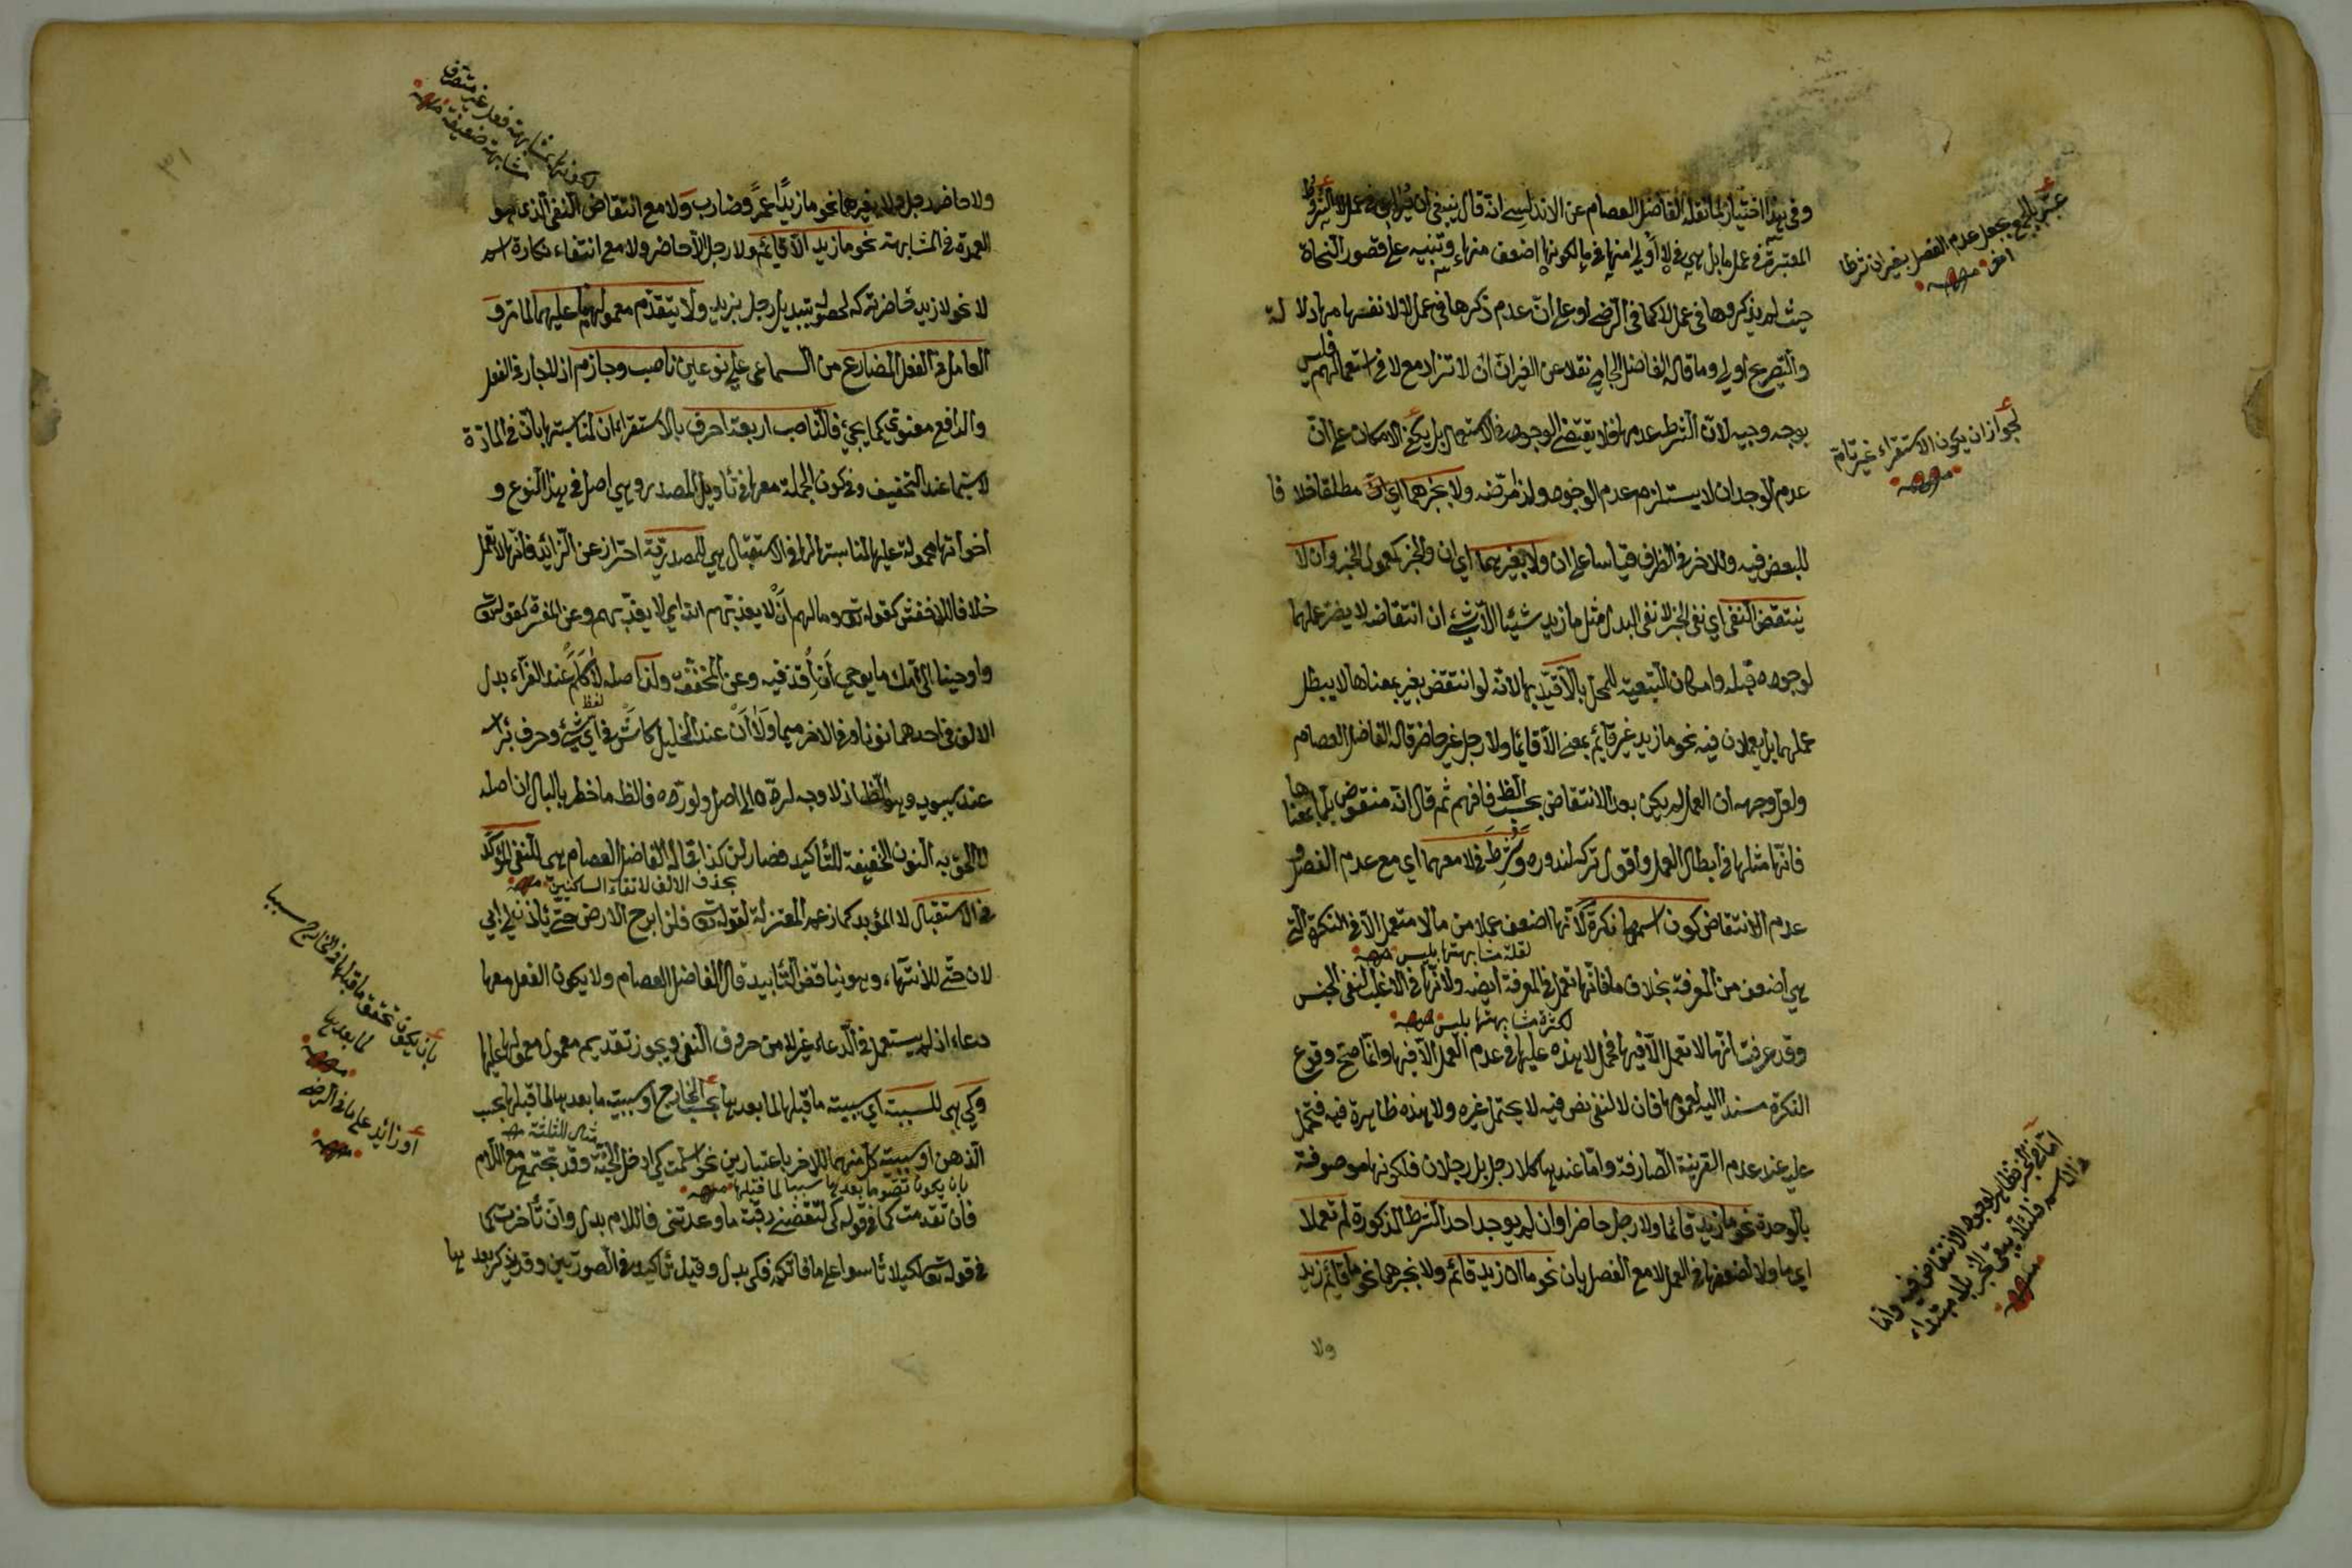 وفي هذا اختيار لما نقله الفاضل العصام عن الاندلسي انه قال ينبغي ان يراعى في عمل لا الشرط
المعتبرة في عمل ما بل هي في لا اولى منها في ما لكونها اضعف منها وتنبيه على قصور النحاة
حيث لم يذكروها في عمل لا كما في الرضي او على ان عدم ذكرها في عمل لا لانفسها مهادلالة
والتصريح اولى وما قاله الفاضل الجامي نقلا عن الغير ان ان لا تزاد مع لا في استعمالهم فليس
بوجه وجيه لان الشرط عدمها فلا يقتضي الوجود في الاستعمال بل يكفي الامكان على ان
عدم الوجدان لا يستلزم عدم الوجود ولذا مرّضه ولا بخبرهما اي مطلقا خلافا
للبعض فيه وللاخر في الظرف قياسا على ان ولا بغيرهما اي ان والخبر كمعمول الخبر وان لا
ينتقض النفي اي نفي الخبر لا نفي البدل مثل ما زيد شيئا الا شيء ان انتقاضه لا يضر عملهما
لوجوده قبله وامكان التبعية للمحل بالا قيد بها لانه لو انتقض بغير بمعناها لا يبطل
عملهما بل يعملان فيه نحو ما زيد غير قائم بمعنى الا قائما ولا رجل غير حاضر قاله الفاضل العصام
ولعل وجهه ان العمل لم يكن بعد الانتقاض بحسب الظ فافهم ثم قال انه منقوض بلما بمعناها
فانها مثلها في ابطال العمل واقول تركه لندوره وشرط في لا معهما اي مع عدم الفصل و
عدم الانتقاض كون اسمها نكرة لانها اضعف عملا من ما لا متعمل الا في النكرة التي
لقلة مشابهتها بليس منه
هي اضعف من المعرفة بخلاف ما فانها تعمل في المعرفة ايضه ولانها في الاغلب لنفي الجنس
لكثرة مشابهتها بليس منه
وقد عرفت انها لا تعمل الا فيها فحمل لا هذه عليها في عدم العمل الا فيها وانما صح وقوع
النكرة مسندا اليه لعمومها فان لا لنفي نص فيه لا يحتمل غيره ولا هذه ظاهرة فيه فتحمل
عليه عند عدم القرينة الصارفة واما عندها كلا رجل بل رجلان فلكونها موصوفة
بالوحدة نحو ما زيد قائما ولا رجل حاضرا وان لم يوجد احد الشرط المذكورة لم تعملا
اي ما ولا لضعفها في العمل لا مع الفصل بان نحو ما ان زيد قائم ولا بخبرهما نحو ما قائم زيد
ولا
عبر بالجمع بجعل عدم الفصل بغير ان شرطا
اخر منه
لجواز ان يكون الاستقراء غير تام
منه
اما في الخبر فظاهر لوجود الانتقاض فيه واما
في الاسم فلئلا يبقى الخبر بلا مبتداء
منه
لكونها مشابهة فعل غير متصرف
مشابهة ضعيفة منه
٣١
ولا حاضر رجل ولا بغيرهما نحو ما زيدا عمرو ضارب ولا مع انتقاض النفي الذي هو
العمدة في المشابهة نحو ما زيد الا قائم ولا رجل الا حاضر ولا مع انتفاء نكارة اسم
لا نحو لا زيد حاضر تركه لحصوله بتبديل رجل بزيد ولا يتقدم معمولهما عليهما لما عرف
العامل في الفعل المضارع من السماعي على نوعين ناصب وجازم اذ لا جار في الفعل
والرافع معنوي كما يجيء فالناصب اربعة احرف بالاستقراء ان لمناسبتها بان في المادة
لا سيما عند التخفيف وفي كون الجملة معها في تأويل المصدر وهي اصل في هذا النوع و
اخواتها محمولة عليها لمناسبتها لها في الاستقبال هي للمصدرية احتراز عن الزائد فانها لا تعمل
خلافا للاخفش كقوله تع وما لهم ان لا يعذبهم الله اي لا يعذبهم وعن المفسرة كقوله تع
واوحينا الى امك ما يوحى ان اقذفيه وعن المخففة ولن اصله لا كلم عند الفراء بدل
الالف في احدهما نونا وفي الاخر ميما ولا ان عند الخليل كاش في اي شيء وحرف برأسه
لفظ
عند سيبويه وهو الظ اذ لا وجه لرده الى اصل ولو رده فالظ ما خطر بالبال ان اصله
لا الحق به النون الخفيفة للتأكيد فصار لن كذا قاله الفاضل العصام هي للنفي المؤكد
بحذف الالف لالتقاء الساكنين منه
في الاستقبال لا المؤبد كما زعم المعتزلة لقوله تع فلن ابرح الارض حتى يأذن لي ابي
لان حتى للانتهاء وهو يناقض التأبيد قال الفاضل العصام ولا يكون الفعل معها
دعاء اذ لم يستعمل في الدعاء غير لا من حروف النفي ويجوز تقديم معمول معمولها عليها
وكي هي للسببية اي سببية ما قبلها لما بعدها بحسب الخارج او سببية ما بعدها لما قبلها بحسب
الذهن او سببية كل منهما للاخر باعتبارين نحو اسلمت كي ادخل الجنة وقد تجتمع مع اللام
مثال للثلثة منه
بان يكون تصور ما بعدها سببا لما قبلها منه
فان تقدمت كما في قوله كي لتقضيني رقية ما وعدتني فاللام بدل وان تأخرت كما
في قوله تع لكيلا تأسوا على ما فاتكم فكي بدل وقيل تأكيد في الصورتين وقد يذكر بعدها
بان يكون تحقق ما قبلها في الخارج سببا
لما بعدها
منه
او زائد على ما في الرضي
منه